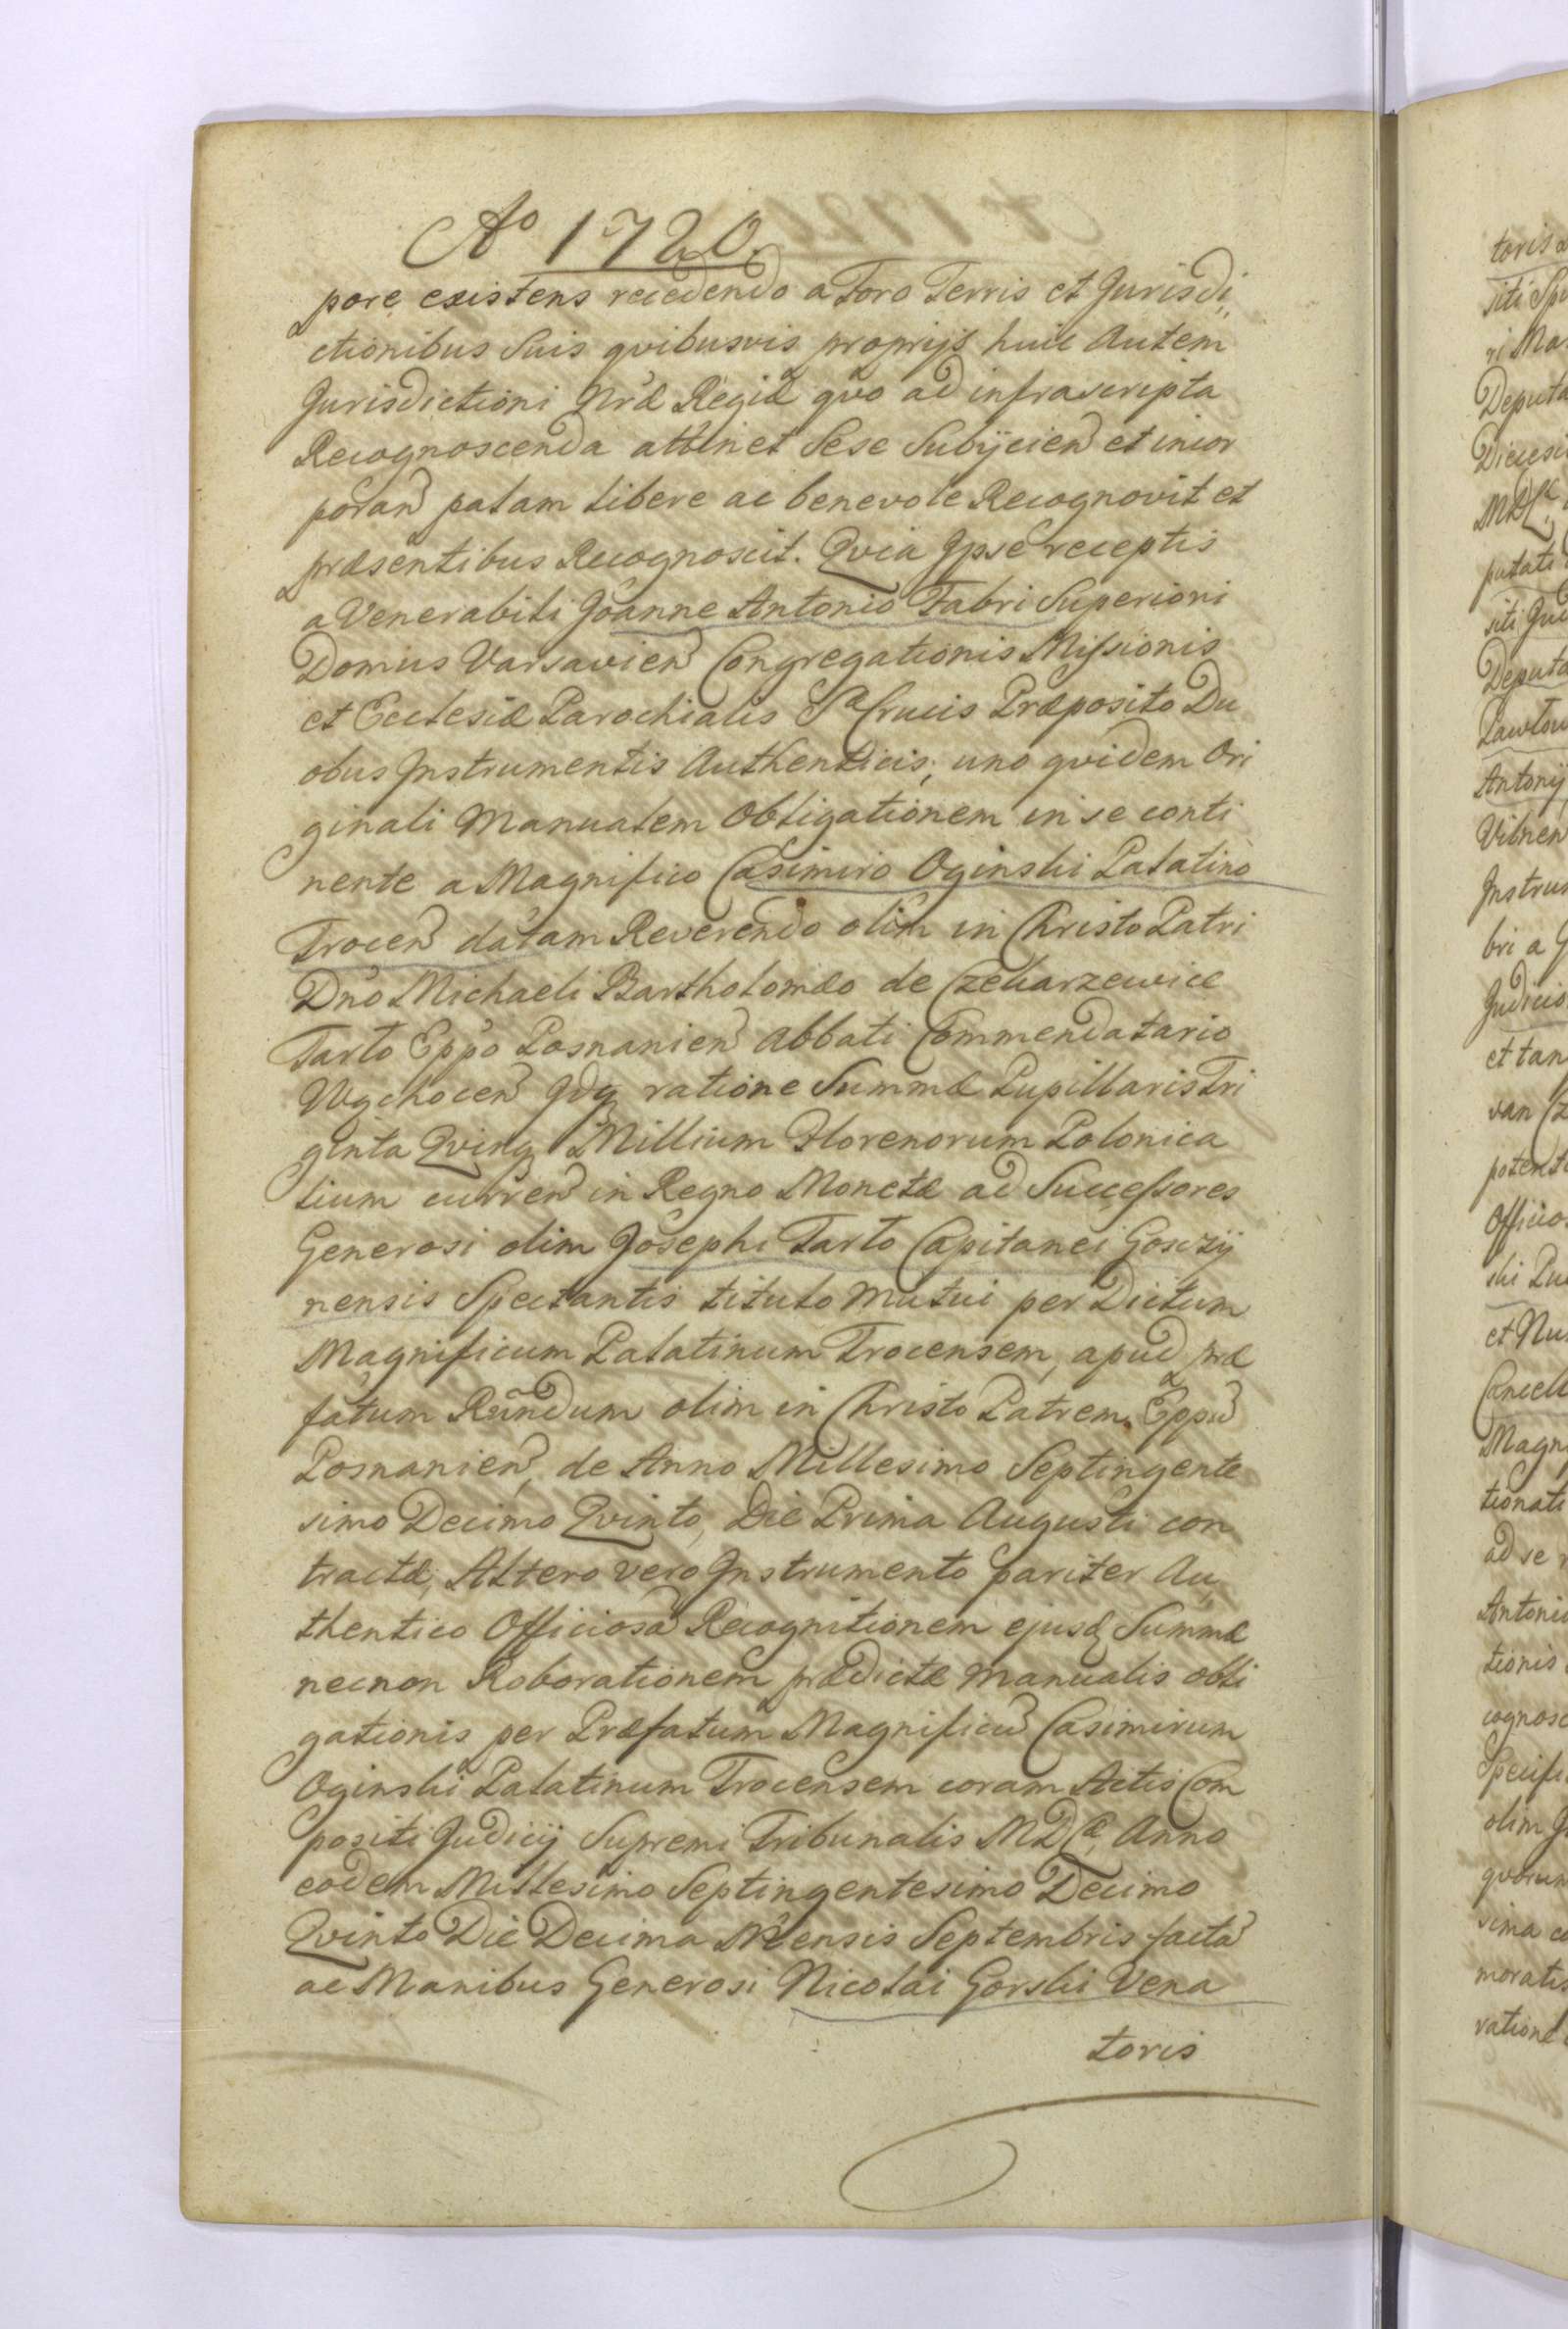 Aº 1720.
pore existens recedendo a Foro Terris et Jurisdi„
ctionibus Suis qvibusvis proprijs huic Autem
Jurisdictioni Nr̃æ Regiæ qvo ad infrascripta
Recognoscenda attinet Sese Subijcien̄ et incor
poran̄ palam libere ac benevole Recognovit et
præsentibus Recognoscit. Qvia Ipse receptis
a Venerabili Joanne Antonio Fabri Superiori
Domus Varsavien̄ Congregationis Missionis
et Ecclesiæ Parochialis Sæ Crucis Præposito Du
obus Instrumentis Authenticis, uno qvidem Ori
ginali Manualem Obligationem in se conti
nente a Magnifico Casimiro Oginski Palatino
Trocen̄ datam Reverendo olim in Christo Patri
Dño Michaeli Bartholomæo de Czekarzewice
Tarło Eppo Posnanien̄ Abbati Commendatario
Wąchocen̄ Idq; ratione Summæ Pupillaris Tri
ginta Qvinq; Millium Florenorum Polonica
lium curren̄ in Regno Monetæ ad Successores
Generosi olim Josephi Tarło Capitanei Goszij
nensis Spectantis titulo Mutui per Dictum
Magnificum Palatinum Trocensem, apud præ
fatum Rñdum olim in Christo Patrem Eppū
Posnanien̄, de Anno Millesimo Septingente
simo Decimo Qvinto, Die Prima Augusti con
tractæ, Altero vero Instrumento pariter Au„
thentico Officiosā Recognitionem ejusd; Summæ
necnon Roborationem prædictæ Manualis obli
gationis per Præfatum Magnificū Casimirum
Oginski Palatinum Trocensem coram Actis Com
positi Judicij Supremi Tribunalis M D Læ, Anno
eodem Millesimo Septingentesimo Decimo
Qvinto Die Decima Mensis Septembris factā
ac Manibus Generosi Nicolai Gorski Vena
toris